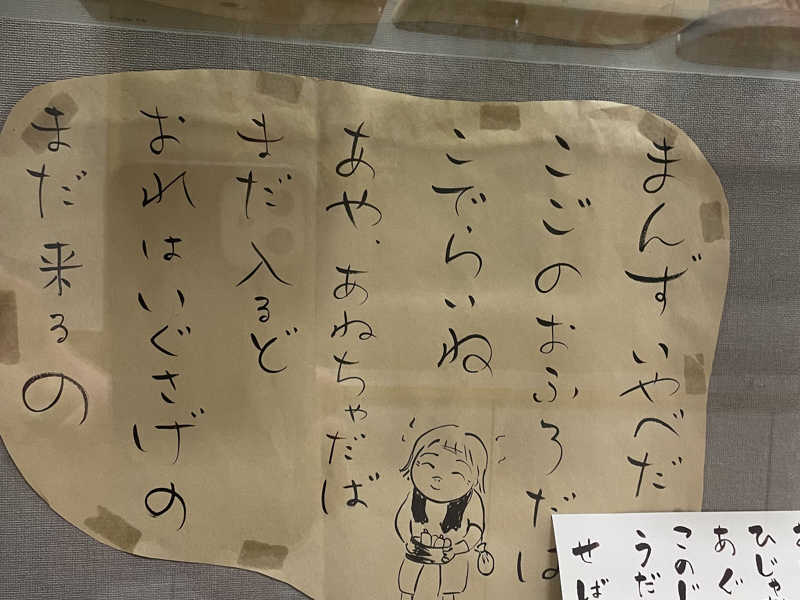 まんず いやべだ
こごのおふろだば
こでらいね
あや、あねちゃだば
まだ入るど
おれはいぐさげの
まだ来るの
ひじゃ
あぐ
このじ
うだ
せば